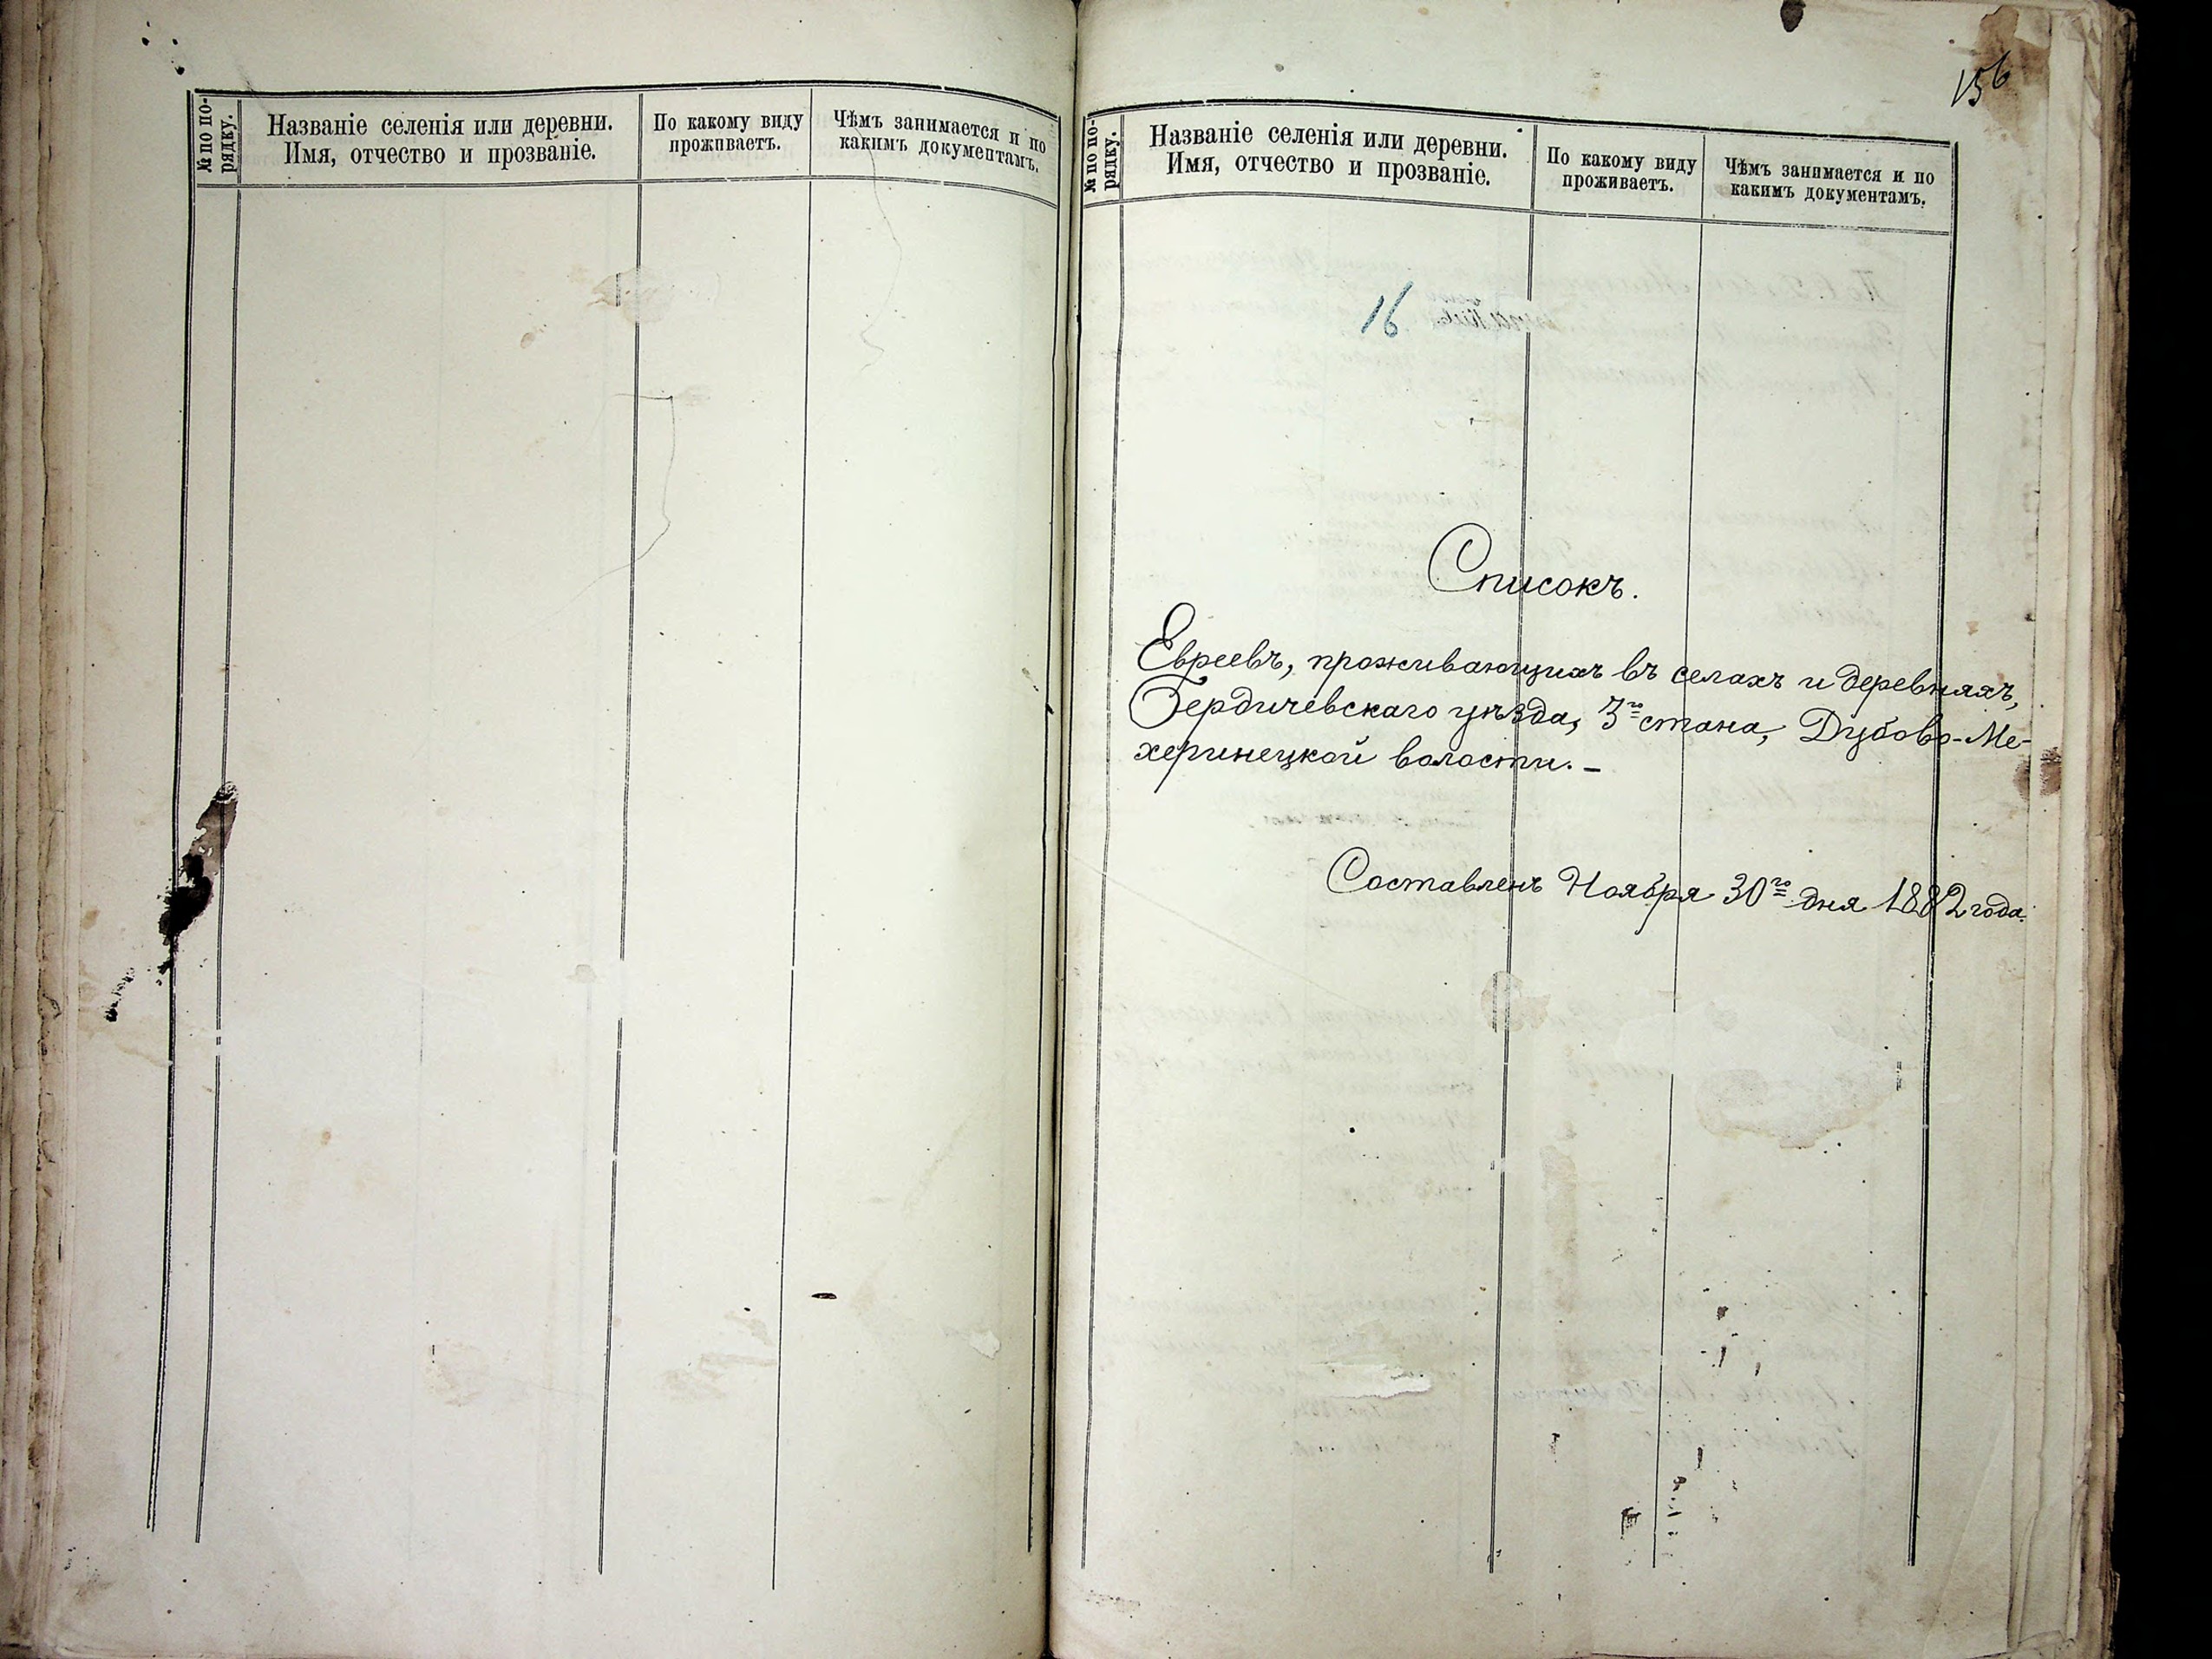 № по по-
рядку.
Названіе селенія или деревни.
Имя, отчество и прозваніе.
По какому виду
проживаетъ.
Чѣмъ занимается и по
какимъ документамъ.
156
№ по по-
рядку.
Названіе селенія или деревни.
Имя, отчество и прозваніе.
По какому виду
проживаетъ.
Чѣмъ занимается и по
какимъ документамъ.
16
Списокъ.
Евреевъ, проживающихъ въ селахъ и деревняхъ,
Бердичевскаго уѣзда, 3го стана, Дубово-Ме-
херинецкой волости. –
Составленъ Ноября 30го дня 1882 года.